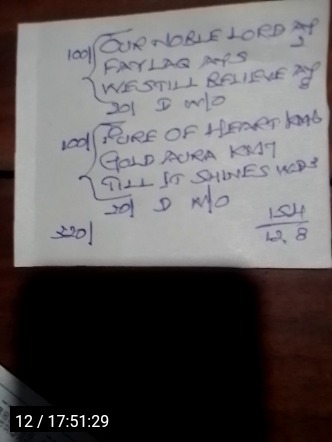 100/ OUR NOBLE LORD AP 3
FAYLAQ AP5
WE STILL BELIEVE AP 8
20/ D W/O
100/ PURE OF HEART KM6
GOLD AURA KM7
TILL IT SHINES WD3
20/ D W/O
154
320/
12.8
12 / 17:51:29